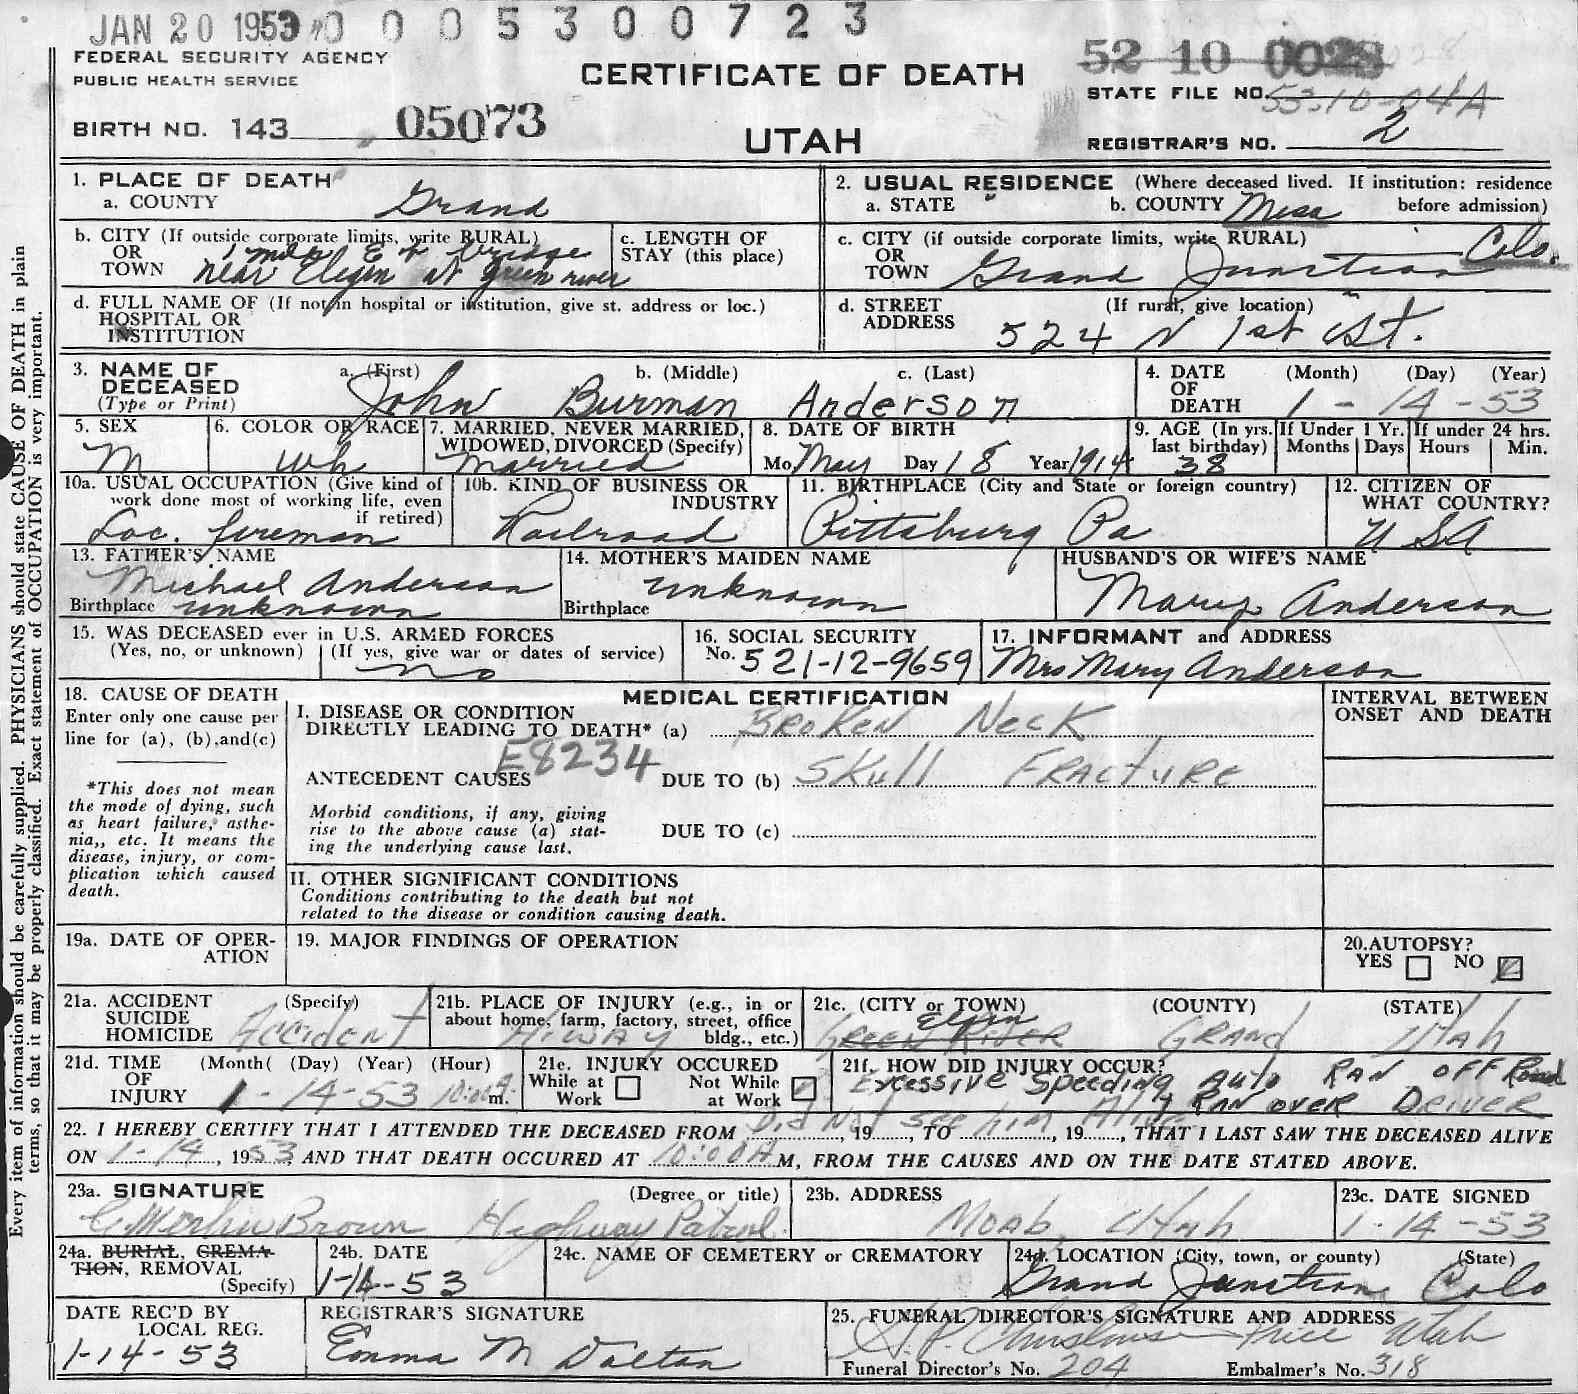 JAN 20 1953 0 0 0 5 3 0 0 7 2 3
FEDERAL SECURITY AGENCY
PUBLIC HEALTH SERVICE
CERTIFICATE OF DEATH
UTAH
52 10 0028
STATE FILE NO. 53-10-04A
BIRTH NO. 143 05073
REGISTRAR'S NO. 2
1. PLACE OF DEATH
a. COUNTY Grand
2. USUAL RESIDENCE (Where deceased lived. If institution: residence before admission)
a. STATE b. COUNTY Mesa
b. CITY (If outside corporate limits, write RURAL)
OR
TOWN
1 mile E of bridge
near Elgin at green river
c. LENGTH OF
STAY (this place)
c. CITY (if outside corporate limits, write RURAL)
OR
TOWN Grand Junction Colo.
d. FULL NAME OF (If not in hospital or institution, give st. address or loc.)
HOSPITAL OR
INSTITUTION
d. STREET (If rural, give location)
ADDRESS 524 N 1st St.
3. NAME OF
DECEASED
(Type or Print)
a. (First) b. (Middle) c. (Last)
John Burman Anderson
4. DATE (Month) (Day) (Year)
OF
DEATH 1-14-53
5. SEX
M
6. COLOR OR RACE
Wh
7. MARRIED, NEVER MARRIED,
WIDOWED, DIVORCED (Specify)
Married
8. DATE OF BIRTH
Mo. May Day 18 Year 1914
9. AGE (In yrs. last birthday)
38
If Under 1 Yr.
Months Days
If under 24 hrs.
Hours Min.
10a. USUAL OCCUPATION (Give kind of
work done most of working life, even
if retired)
Loc. fireman
10b. KIND OF BUSINESS OR
INDUSTRY
Railroad
11. BIRTHPLACE (City and State or foreign country)
Pittsburg Pa
12. CITIZEN OF
WHAT COUNTRY?
USA
13. FATHER'S NAME
Michael Anderson
Birthplace unknown
14. MOTHER'S MAIDEN NAME
unknown
Birthplace
HUSBAND'S OR WIFE'S NAME
Mary Anderson
15. WAS DECEASED ever in U.S. ARMED FORCES
(Yes, no, or unknown) (If yes, give war or dates of service)
no
16. SOCIAL SECURITY
No. 521-12-9659
17. INFORMANT and ADDRESS
Mrs Mary Anderson
18. CAUSE OF DEATH
Enter only one cause per
line for (a), (b), and (c)
*This does not mean
the mode of dying, such
as heart failure, asthe-
nia,, etc. It means the
disease, injury, or com-
plication which caused
death.
MEDICAL CERTIFICATION
I. DISEASE OR CONDITION
DIRECTLY LEADING TO DEATH* (a) Broken Neck
E8234
ANTECEDENT CAUSES DUE TO (b) Skull Fracture
Morbid conditions, if any, giving
rise to the above cause (a) stat-
ing the underlying cause last.
DUE TO (c)
II. OTHER SIGNIFICANT CONDITIONS
Conditions contributing to the death but not
related to the disease or condition causing death.
INTERVAL BETWEEN
ONSET AND DEATH
19a. DATE OF OPER-
ATION
19. MAJOR FINDINGS OF OPERATION
20. AUTOPSY?
YES NO
21a. ACCIDENT (Specify)
SUICIDE
HOMICIDE Accident
21b. PLACE OF INJURY (e.g., in or
about home, farm, factory, street, office
bldg., etc.)
Hiway
21c. (CITY or TOWN) (COUNTY) (STATE)
Elgin
Green River Grand Utah
21d. TIME (Month( (Day) (Year) (Hour)
OF
INJURY 1-14-53 10:00 a m.
21e. INJURY OCCURED
While at Work Not While at Work
21f. HOW DID INJURY OCCUR?
Excessive Speeding Auto Ran off Road
& Ran over Driver
Did Not See him Alive
22. I HEREBY CERTIFY THAT I ATTENDED THE DECEASED FROM , 19 , TO , 19 , THAT I LAST SAW THE DECEASED ALIVE
ON 1-14, 1953, AND THAT DEATH OCCURED AT 10:00 A M, FROM THE CAUSES AND ON THE DATE STATED ABOVE.
23a. SIGNATURE (Degree or title)
C. Merlin Brown Highway Patrol
23b. ADDRESS
Moab, Utah
23c. DATE SIGNED
1-14-53
24a. BURIAL, CREMA-
TION, REMOVAL
(Specify)
24b. DATE
1-14-53
24c. NAME OF CEMETERY OR CREMATORY
24d. LOCATION (City, town, or county) (State)
Grand Junction Colo
DATE REC'D BY
LOCAL REG.
1-14-53
REGISTRAR'S SIGNATURE
Emma M Dalton
25. FUNERAL DIRECTOR'S SIGNATURE AND ADDRESS
Price Utah
Funeral Director's No. 204 Embalmer's No. 318
Every item of information should be carefully supplied. PHYSICIANS should state CAUSE OF DEATH in plain
terms, so that it may be properly classified. Exact statement of OCCUPATION is very important.